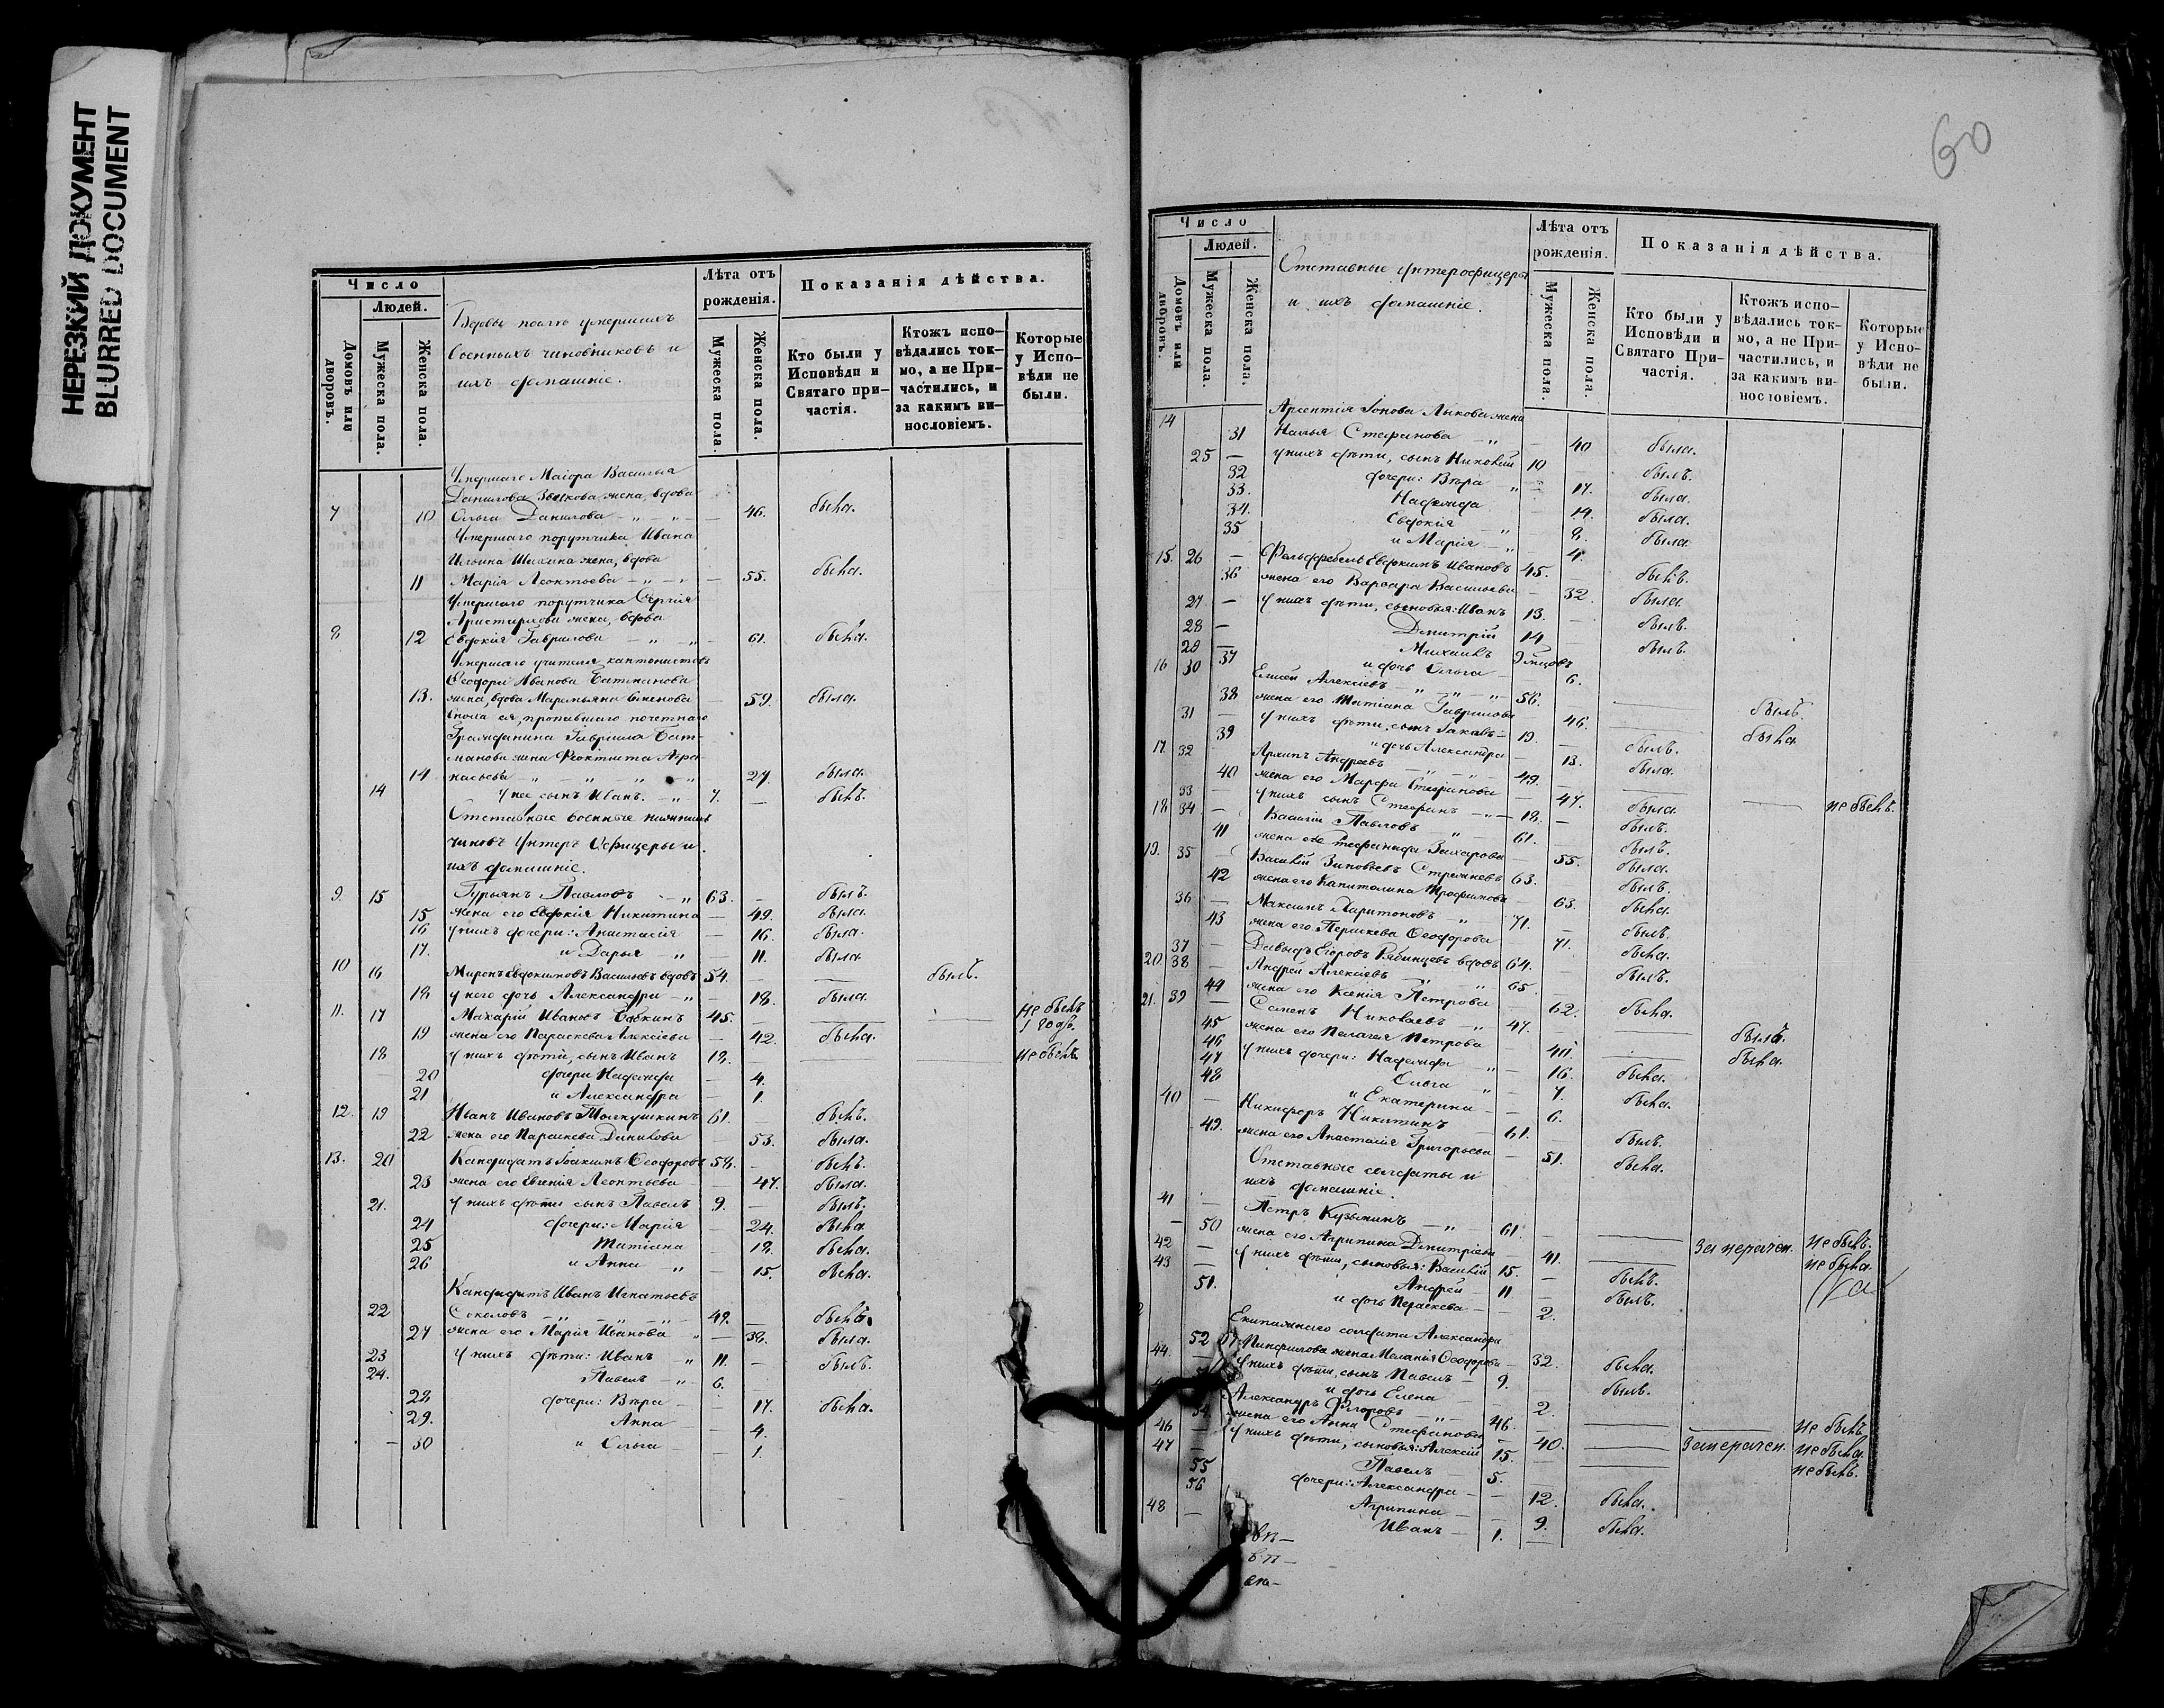 НЕРЕЗКИЙ ДОКУМЕНТ
BLURRED DOCUMENT
Число
Людей.
Домовъ или дворовъ.
Мужеска пола.
Женска пола.
Вдовы после умершихъ
военныхъ чиновниковъ и
ихъ домашніе.
Лѣта отъ рожденія.
Мужеска пола.
Женска пола.
Показанія дѣйства.
Кто были у Исповѣди и Святаго причастія.
Ктожъ исповѣдались токмо, а не Причастились, и за какимъ винословіемъ.
Которые у Исповѣди не были.
Умершаго Маіора Василья
Данилова жена, вдова
7 10 Ольга Данилова — „ — „ — 46. была.
Умершаго порутчика Ивана
Ильина жена, вдова
11 Марія Леонтьева — „ — 55. была.
Умершаго порутчика Сергія
жена, вдова
8 12 Евдокія Гаврилова — „ — „ — 61. была.
Умершаго учителя кантонистовъ
Ѳеодора Иванова Батманова
13. жена, вдова Маремьяна — 59. была.
почетнаго
Гражданина Гавріила Бат-
манова жена Феоктиста Афа-
14 насьева „ — „ — „ — 27. была.
14 У нее сынъ Иванъ. — „ — 7. — былъ.
Отставные военные нижнихъ
чиновъ Унтеръ Офицеры и
ихъ домашніе.
9. 15 Гурьянъ Павловъ — „ 63. — былъ.
15 жена его Евдокія Никитина — 49. была.
16 у нихъ дочери: Анастасія — 16. была.
17. и Дарья „ — 11. была.
10 16 Миронъ Евдокимовъ Васильевъ вдовъ 54. — былъ.
18 у него дочь Александра — „ — 18. была.
11. 17 Макарій Ивановъ 45. — не былъ
1 годъ.
19 жена его Параскева Алексіева — 42. была.
18 у нихъ дѣти, сынъ Иванъ 18. — не былъ
20 дочери Надежда — 4.
21 и Александра — 1.
12. 19 Иванъ Ивановъ Толкушкинъ 61. былъ.
22 жена его Параскева Данилова 53. была.
13. 20 Кандидатъ Іоакимъ Ѳеодоровъ 58. — былъ.
23 жена его Евгенія Леонтьева — 47. была.
21. у нихъ дѣти сынъ Павелъ 9. — былъ.
24 дочери: Марія — 24. была
25 Татіана — 18. была.
26 и Анна „ — 15. была.
Кандидатъ Иванъ Игнатьевъ
22 Соколовъ „ — „ — 49. — былъ.
27 жена его Марія Иванова „ — 38. была.
23 У нихъ дѣти: Иванъ — „ 11. — былъ.
24. Павелъ — „ 6.
28 дочери: Вѣра — 17. была.
29. Анна — 4.
30 и Ольга — 1.
60
Число
Людей.
Домовъ или дворовъ.
Мужеска пола.
Женска пола.
Отставные Унтерофицеры
и ихъ домашніе.
Лѣта отъ рожденія.
Мужеска пола.
Женска пола.
Показанія дѣйства.
Кто были у Исповѣди и Святаго Причастія.
Ктожъ исповѣдались токмо, а не Причастились, и за какимъ винословіемъ.
Которые у Исповѣди не были.
14 Арсентія Іонова Лыкова жена
31 Стефанова — „ — 40 была.
25 — у нихъ дѣти, сынъ Николай 10 былъ.
32 дочери: Вѣра „ — 17. была
33. Надежда 14. была.
34. Евдокія „ 9. была
35 и Марія — „ 4.
15. 26 — Фельдфебель Евдокимъ Ивановъ 45. — былъ.
36 жена его Варвара Васильева — 32. была.
27 — у нихъ дѣти, сыновья: Иванъ 13. — былъ.
28 — Дмитрій 14 — былъ.
29 — Михаилъ
37 и дочь Ольга — 6.
16 30 Елисей Алексіевъ — „ — „ — 56. былъ.
38 жена его Татіана Гаврилова 46. была
31 — У нихъ дѣти, сынъ Іаковъ 19. — былъ.
39 дочь Александра — 13. была.
17. 32 Архипъ Андреевъ 49. не былъ.
40 жена его Марфа Стефанова — 47. была.
33 — У нихъ сынъ Стефанъ — „ — 18. — былъ.
18 34 — Василій Павловъ — „ — 61. былъ.
41 жена его Стефанида Захарова — 55. была.
19. 35 — Василій Зиновьевъ 63. былъ.
42 жена его Капитолина Трофимова — 63. была.
36 — Максимъ Харитоновъ — „ 71. — былъ.
43 жена его Параскева Ѳеодорова — 71. была.
37 — Давыдъ Егоровъ вдовъ 64. — былъ.
20 38 — Андрей Алексіевъ „ „ 65. —
44 жена его Ксенія Петрова — 62. была.
21. 39 — Семенъ Николаевъ „ 47. былъ.
45 жена его Пелагея Петрова была.
46 у нихъ дочери: Надежда — „ — 16. была.
47 Ольга — „ — 7. была.
48 и Екатерина — — 6.
40 — Никифоръ Никитинъ 61. — былъ.
49. жена его Анастасія Григорьева — 51. была.
Отставные солдаты и
ихъ домашніе.
41 — Петръ Кузьминъ — „ — 61. — не былъ.
50 жена его Агрипина Дмитріева — 41. не была.
42 — У нихъ дѣти, сыновья: Василій 15. — былъ.
43 — Андрей — 11. — былъ.
51. и дочь Параскева — — 2.
солдата Александра
52 жена Меланія Ѳеодорова — 32. была.
44. у нихъ дѣти, сынъ Павелъ — 9. былъ.
и дочь Елена — 2.
Александръ Ѳедоровъ — „ — 46. — не былъ
54. жена его Анна Стефанова — 40. не была.
46 — у нихъ дѣти, сыновья: Алексій 15. — не былъ.
47 — Павелъ — 5.
55 дочери: Александра — — 12. была.
56 Агрипина — — 9. была.
48 — Иванъ — 1. —